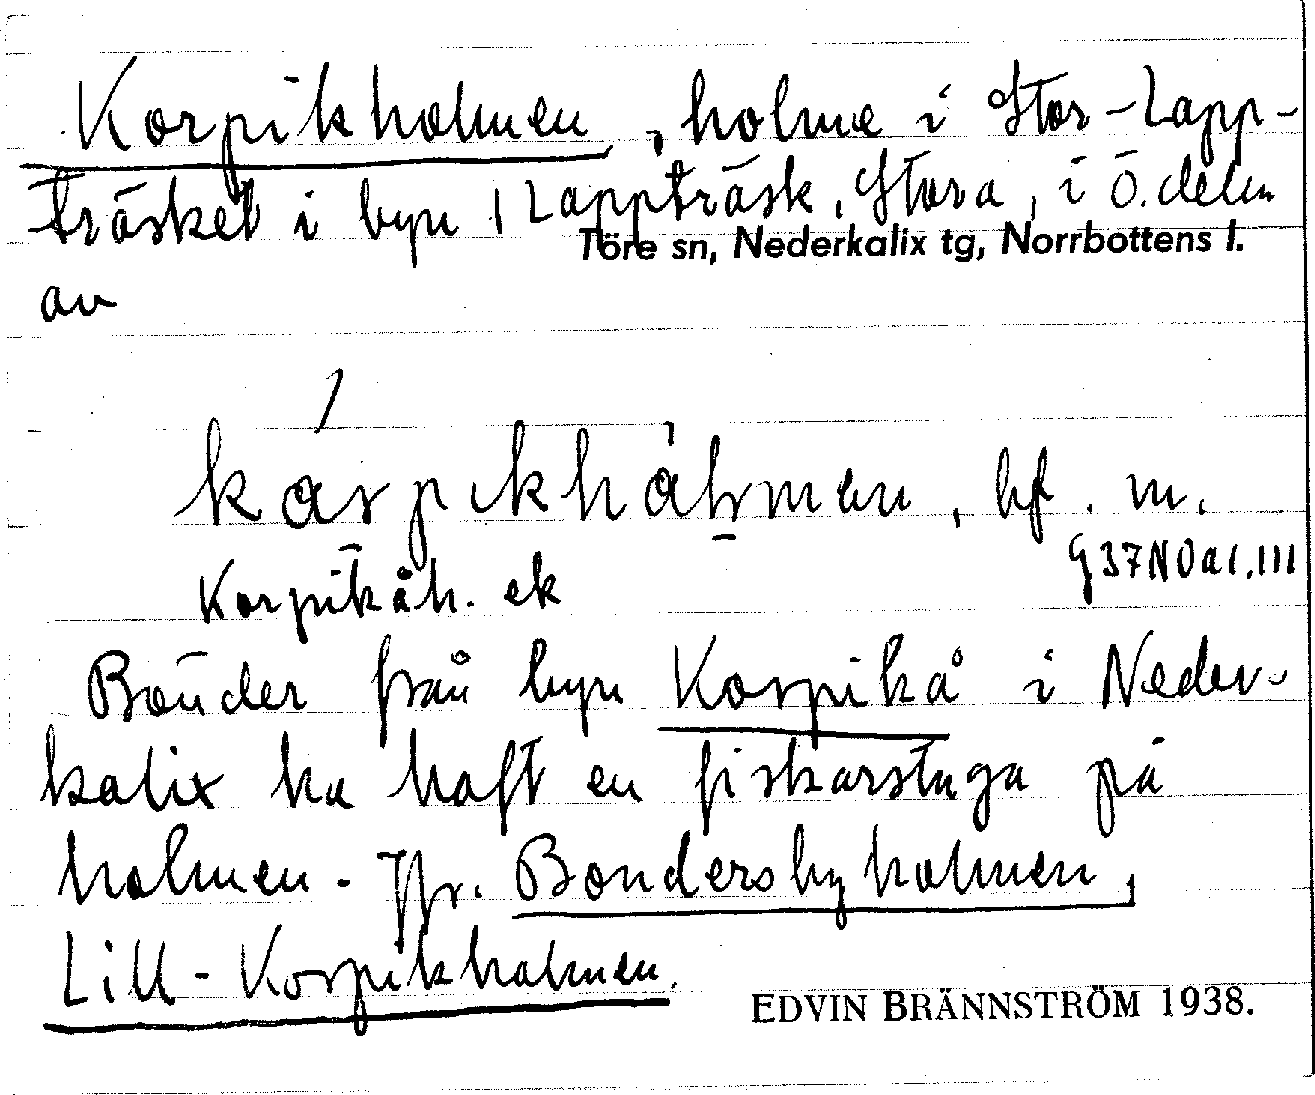 Korpikholmen, holme i Stor-Lapp-
träsket i byn Lappträsk, Stora, i ö. delen
Töre sn, Nederkalix tg, Norrbottens l.
av
kårpikhålmen, bf. m.
Korpikåh. ek
Bönder från byn Korpikå i Neder-
kalix ha haft en fiskarstuga på
holmen. Jfr. Bondersbyholmen,
Lill-Korpikholmen.
EDVIN BRÄNNSTRÖM 1938.